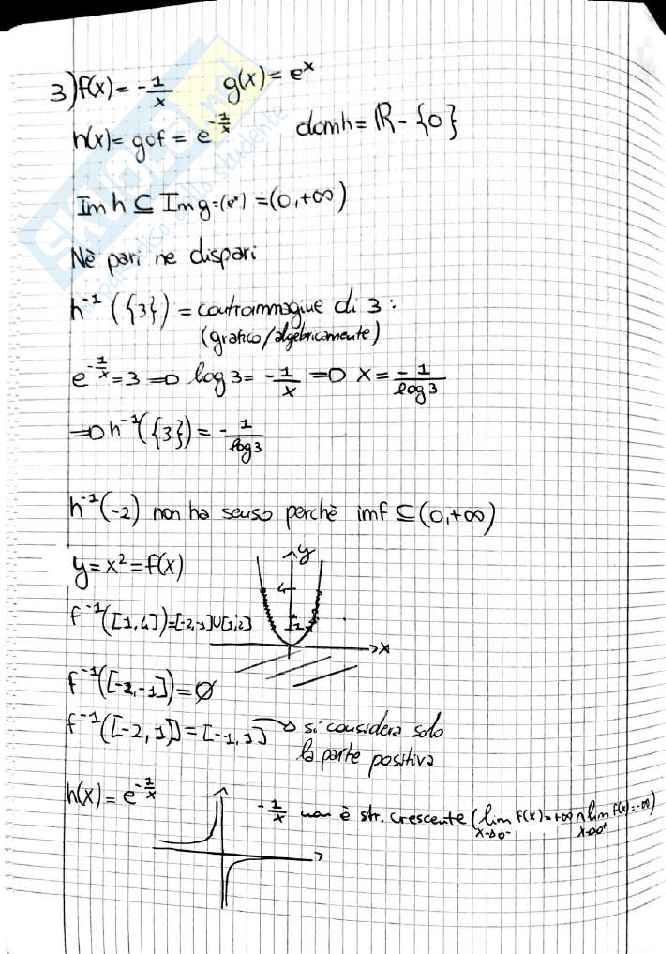 3) f(x) = -1/x   g(x) = e^x
h(x) = gof = e^{-1/x}   dom h = ℝ - {0}
Im h ⊆ Im g = (e^x) = (0, +∞)
Nè pari ne dispari
h^{-1} ({3}) = controimmagine di 3 :
(grafico/algebricamente)
e^{-1/x} = 3 ⇒ log 3 = -1/x ⇒ x = -1/log 3
⇒ h^{-1}({3}) = -1/log 3
h^{-1}(-2) non ha senso perchè im f ⊆ (0, +∞)
y = x² = f(x)
y
4
1
x
f^{-1}([1,4]) = [-2,-1]∪[1,2]
f^{-1}([-2,-1]) = ∅
f^{-1}([-2,1]) = [-1,1] → si considera solo
la parte positiva
h(x) = e^{-1/x}
-1/x non è str. crescente (lim x→0⁻ f(x) = +∞ ∧ lim x→0⁺ f(x) = -∞)